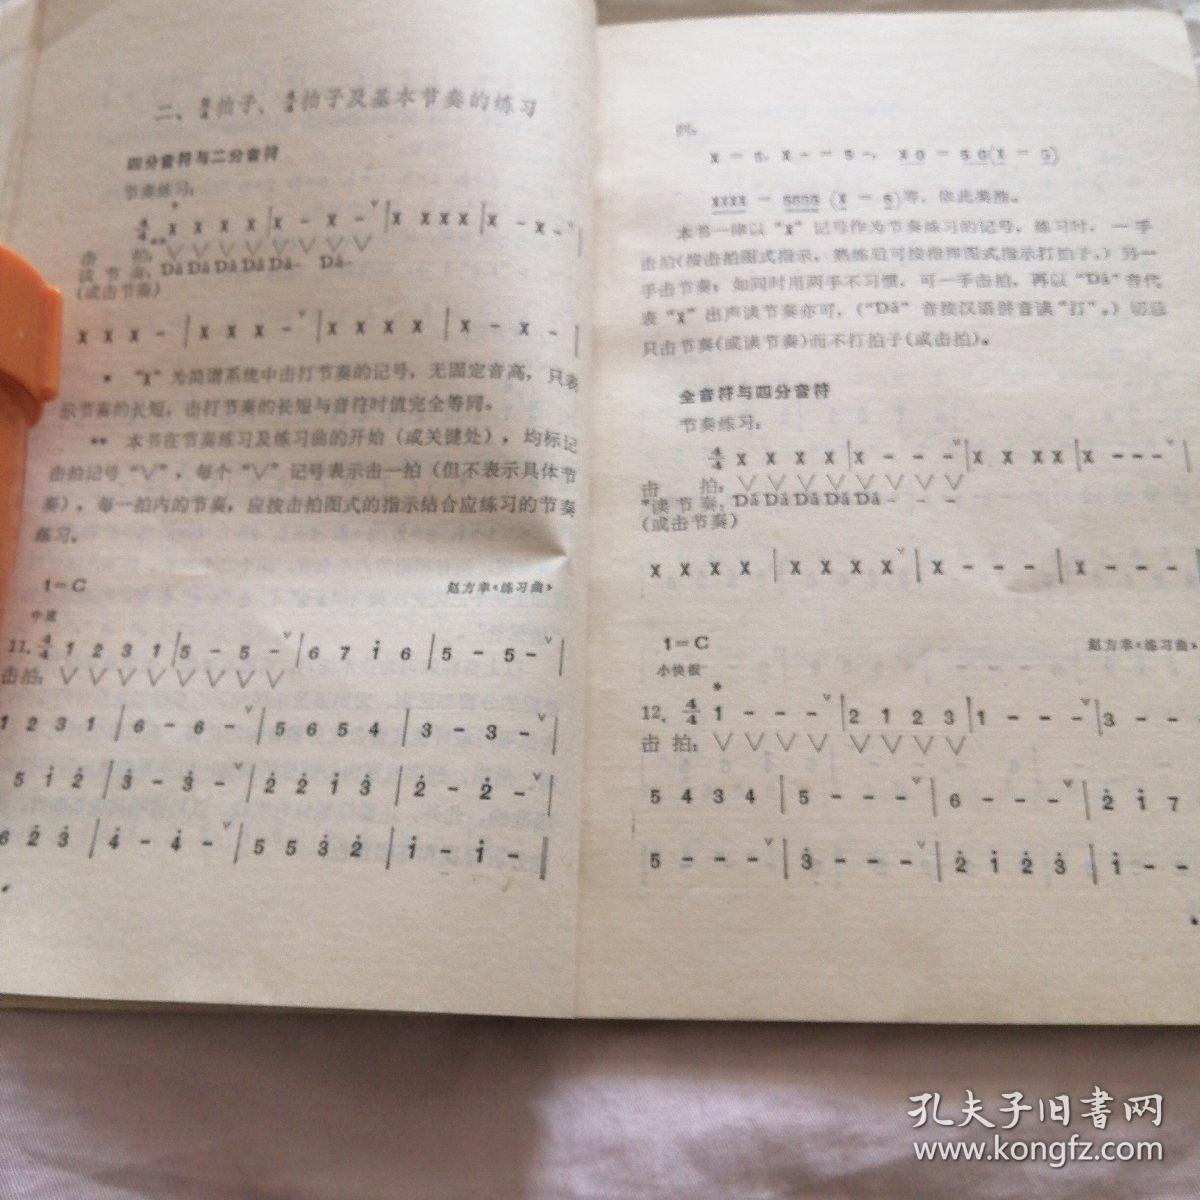 二、2/4拍子、4/4拍子及基本节奏的练习
四分音符与二分音符
节奏练习:
4/4 X X X X | X - X -ˇ | X X X X | X - X -ˇ |
击 拍: V V V V V V V V
读 节 奏: Dá Dá Dá Dá Dá- Dá-
(或击节奏)
X X X - | X X X -ˇ | X X X X | X - X - |
* “X”为简谱系统中击打节奏的记号，无固定音高，只表
示节奏的长短，击打节奏的长短与音符时值完全等同。
** 本书在节奏练习及练习曲的开始（或关键处），均标记
击拍记号“V”，每个“V”记号表示击一拍（但不表示具体节
奏），每一拍内的节奏，应按击拍图式的指示结合应练习的节奏
练习。
1=C 赵方幸《练习曲》
中速
11. 4/4 1 2 3 1 | 5 - 5 -ˇ | 6 7 i̇ 6 | 5 - 5 -ˇ |
击拍: V V V V V V V V
1 2 3 1 | 6 - 6 -ˇ | 5 6 5 4 | 3 - 3 -ˇ |
5 1̇ 2̇ | 3̇ - 3̇ -ˇ | 2̇ 2̇ 1̇ 3̇ | 2̇ - 2̇ -ˇ |
6 2̇ 3̇ | 4̇ - 4̇ -ˇ | 5 5 3̇ 2̇ | 1̇ - 1̇ - |
例:
X - 5、X - - 5 -，X 0 - 5 0 (X - 5)
XXXX - 5555 (X - 5) 等，依此类推。
本书一律以“X”记号作为节奏练习的记号，练习时，一手
击拍(按击拍图式指示，熟练后可按指挥图式指示打拍子。)另一
手击节奏；如同时用两手不习惯，可一手击拍，再以“Dá”音代
表“X”出声读节奏亦可，(“Dá”音按汉语拼音读“打”。)切忌
只击节奏(或读节奏)而不打拍子(或击拍)。
全音符与四分音符
节奏练习:
4/4 X X X X | X - - -ˇ | X X X X | X - - -ˇ |
击 拍: V V V V V V V V
*读 节 奏: Dá Dá Dá Dá Dá - - -
(或击节奏)
X X X X | X X X Xˇ | X - - - | X - - - |
1=C 赵方幸《练习曲》
小快板
*
12. 4/4 1 - - -ˇ | 2 1 2 3 | 1 - - -ˇ | 3 - -
击 拍: V V V V V V V V
5 4 3 4 | 5 - - -ˇ | 6 - - -ˇ | 2̇ 1̇ 7
5 - - -ˇ | 3̇ - - -ˇ | 2̇ 1̇ 2̇ 3̇ | 1̇ - -
孔夫子旧书网
www.kongfz.com